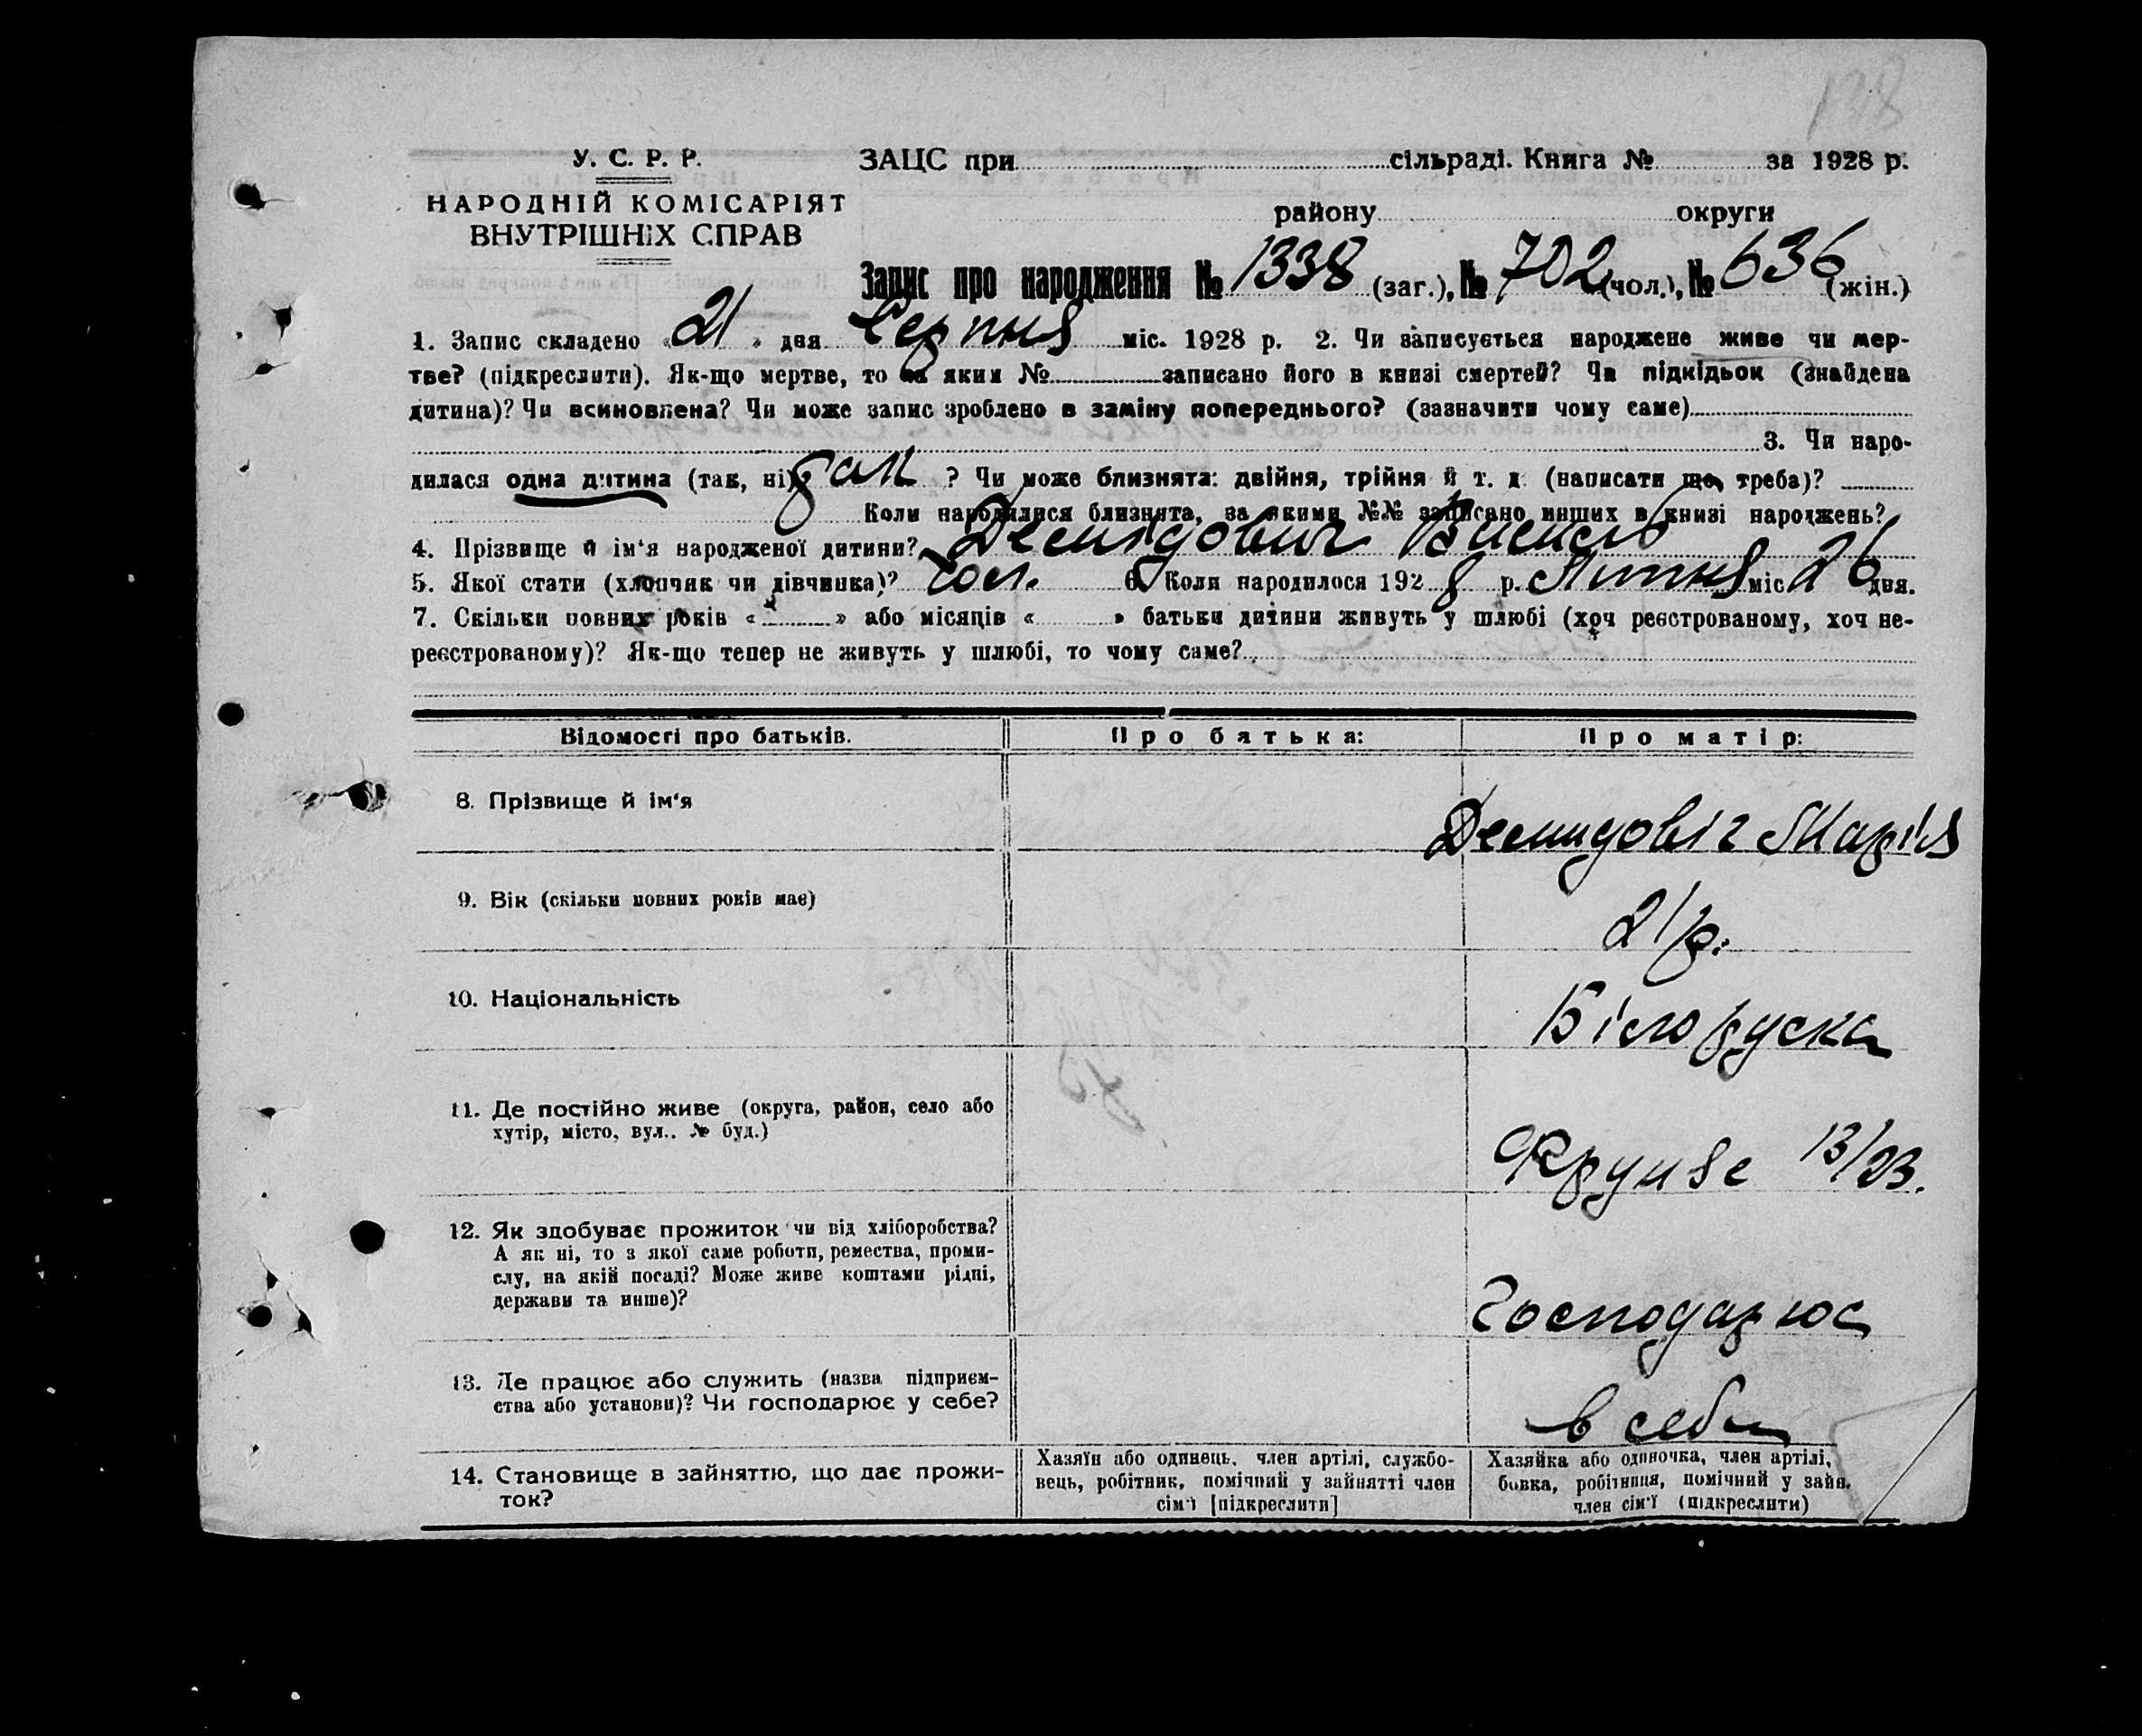 138
У. С. Р. Р.
НАРОДНІЙ КОМІСАРІЯТ
ВНУТРІШНІХ СПРАВ
ЗАЦС при сільраді. Книга № за 1928 р.
району округи
Запис про народження № 1338 (заг.), № 702 (чол.), № 636 (жін.)
1. Запис складено « 21 » дня Серпня міс. 1928 р. 2. Чи записується народжене живе чи мер-
тве? (підкреслити). Як-що мертве, то за яким № записано його в книзі смертей? Чи підкідьок (знайдена
дитина)? Чи всиновлена? Чи може запис зроблено в заміну попереднього? (зазначити чому саме)
3. Чи наро-
дилася одна дитина (так, ні)? так ? Чи може близнята: двійня, трійня й т. д. (написати що треба)?
Коли народилися близнята, за якими №№ записано инших в книзі народжень?
4. Прізвище й ім'я народженої дитини? Демідович
5. Якої стати (хлопчик чи дівчинка)? чол. 6. Коли народилося 1928 р. Липня міс. 26 дня.
7. Скільки повних років « » або місяців « » батьки дитини живуть у шлюбі (хоч реєстрованому, хоч не-
реєстрованому)? Як-що тепер не живуть у шлюбі, то чому саме?
Відомості про батьків. Про батька: Про матір:
8. Прізвище й ім'я Демидовіч Марія
9. Вік (скільки повних років має) 21 р.
10. Національність Білоруска
11. Де постійно живе (округа, район, село або
хутір, місто, вул., № буд.) Фрунзе 13/23.
12. Як здобуває прожиток чи від хліборобства?
А як ні, то з якої саме роботи, ремества, проми-
слу, на якій посаді? Може живе коштами рідні,
держави та инше)? Господарює
13. Де працює або служить (назва підприєм-
ства або установи)? Чи господарює у себе? в себе
14. Становище в зайняттю, що дає прожи-
ток?
Хазяїн або одинець, член артілі, службо-
вець, робітник, помічний у зайнятті член
сім'ї [підкреслити]
Хазяйка або одиночка, член артілі,
бовка, робітниця, помічний у зайн.
член сім'ї (підкреслити)